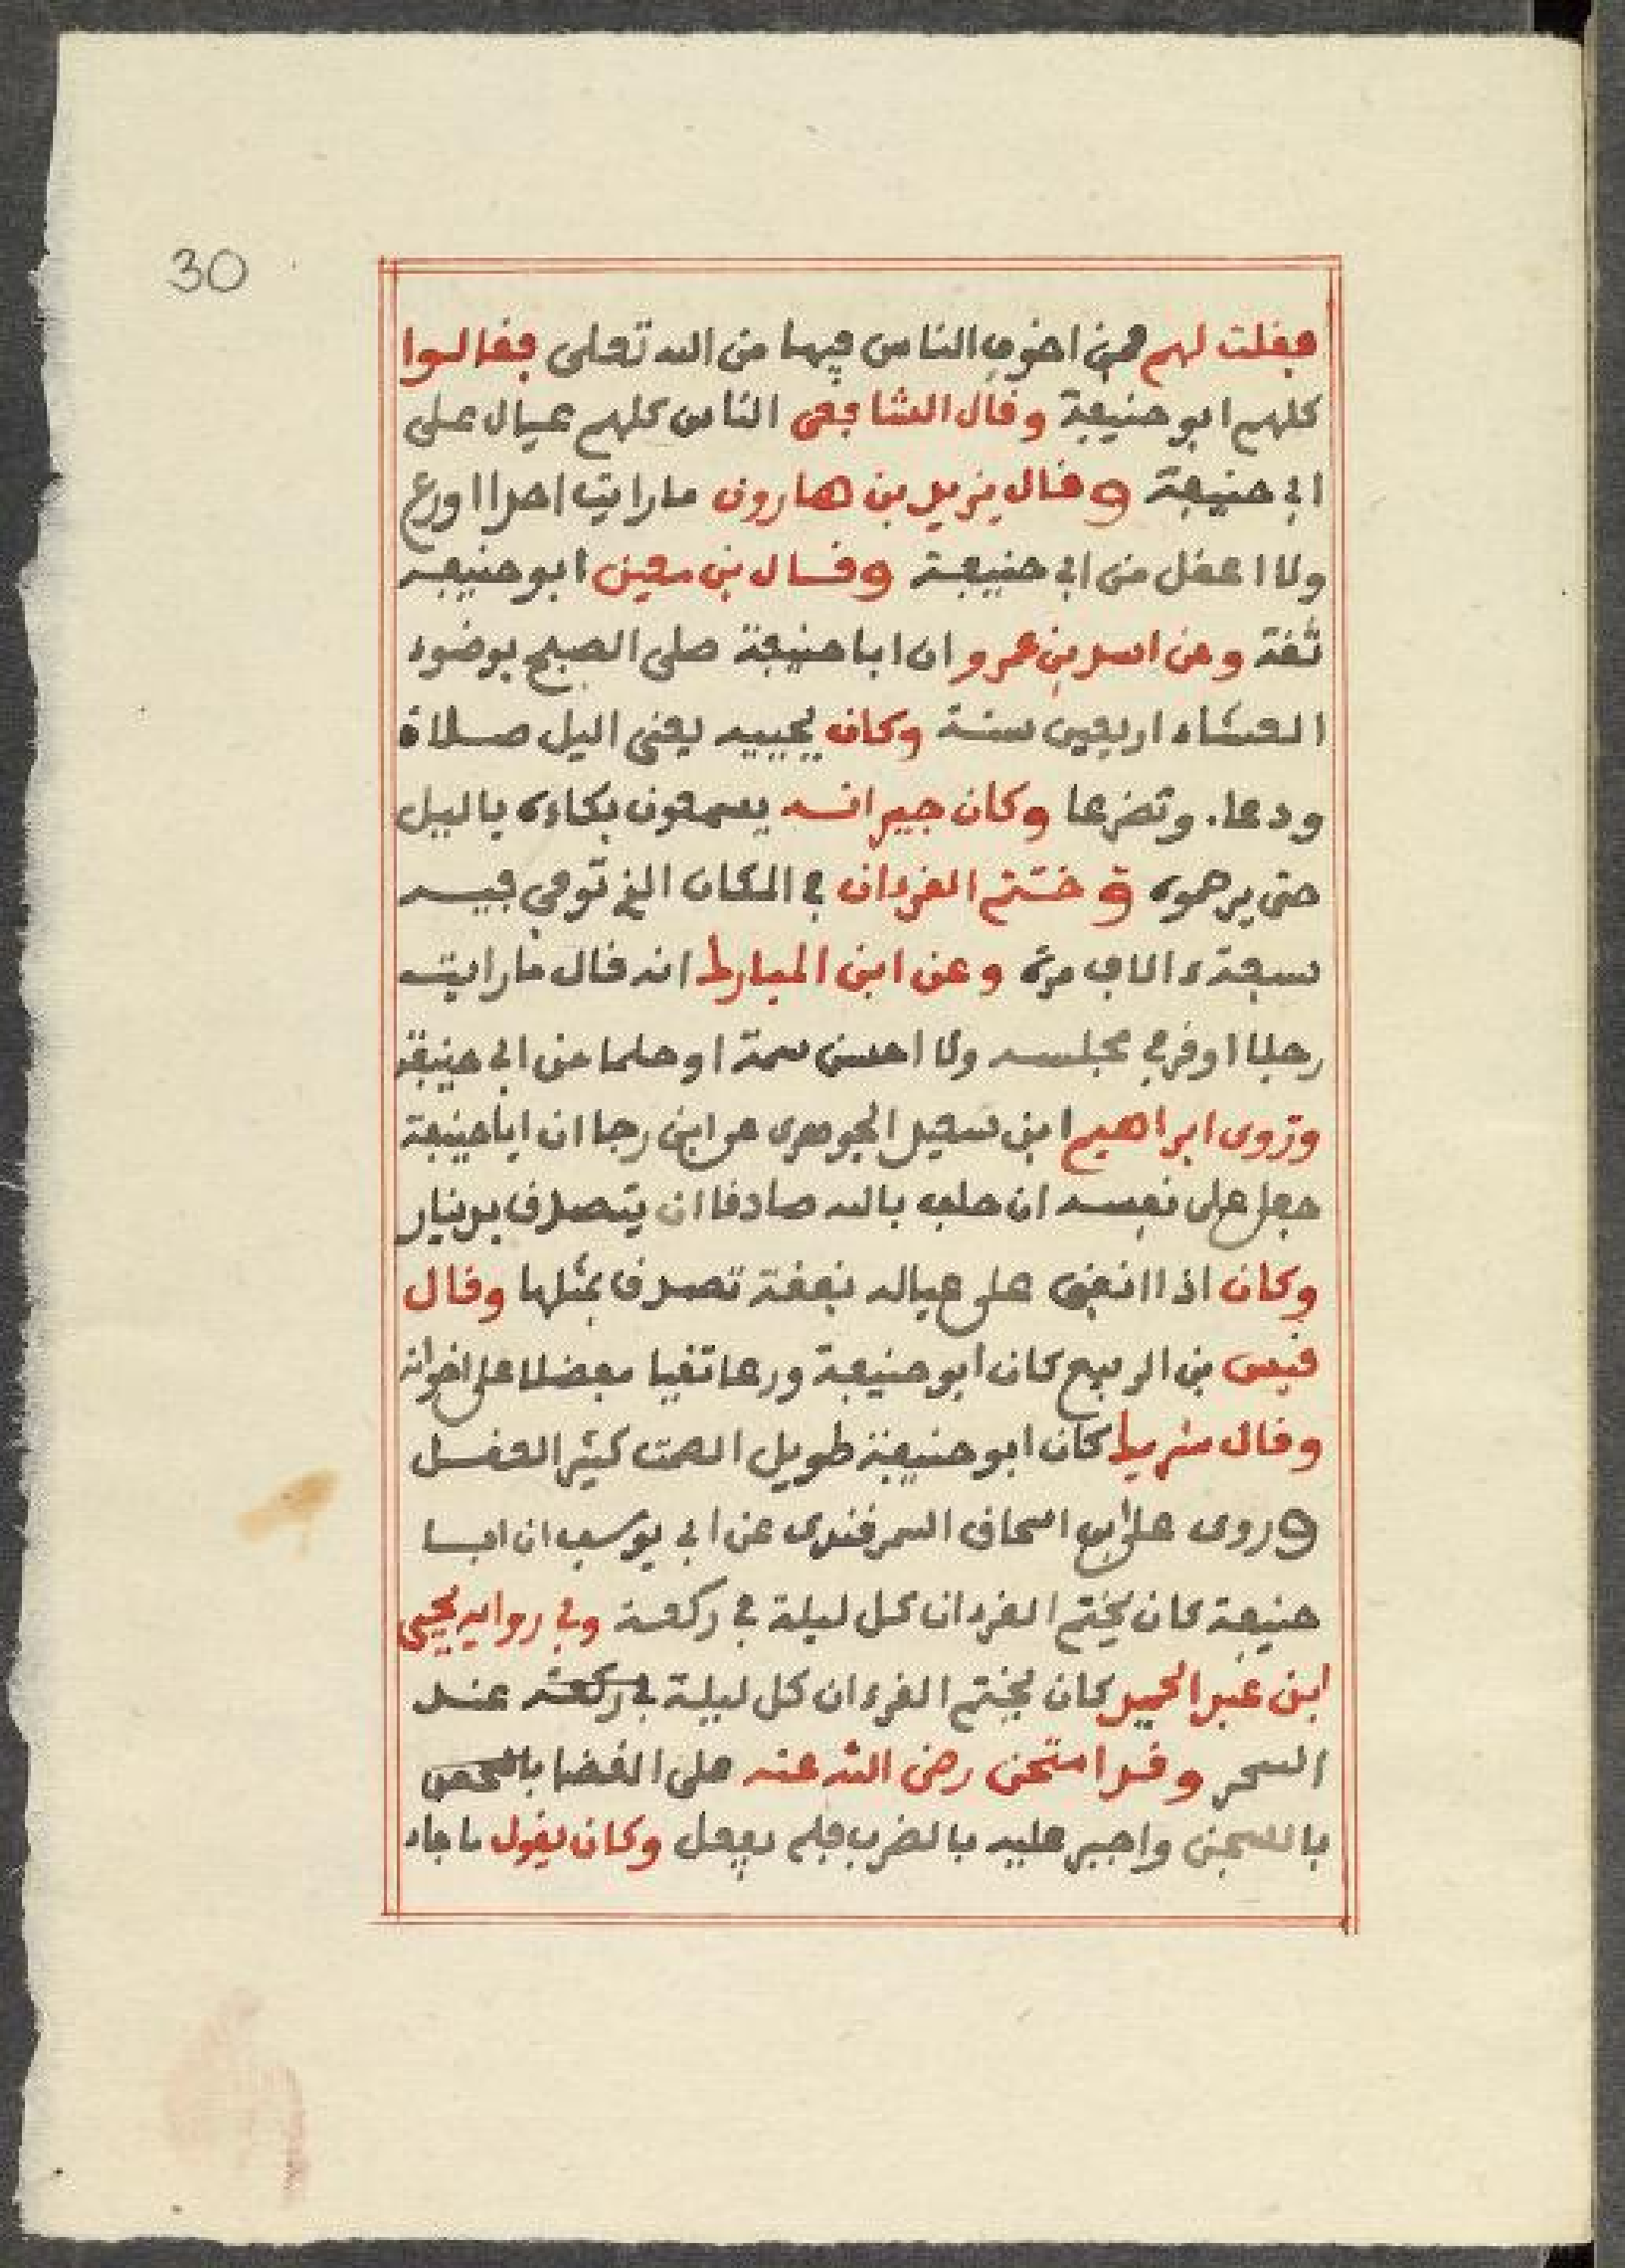 30
فقلت لهم فمن اخوف الناس فيها من الله تعلى فقالوا
كلهم ابو حنيفة وقال الشافعى الناس كلهم عيال على
ابى حنيفة وقال يزيد بن هارون ما رايت احدا اورع
ولا اعقل من ابى حنيفة وقال بن معين ابو حنيفة
ثقة وعن اسد بن عمرو ان ابا حنيفة صلى الصبح بوضوء
العشاء اربعين سنة وكان يحييه يعنى اليل صلاة
ودعاء وتضرعا وكان جيرانه يسمعون بكاءه باليل
حتى يرحموه وختم القرءان في المكان الذي توفي فيه
سبعة ءالاف مرة وعن ابن المبارك انه قال ما رايت
رجلا اوقر في مجلسه ولا احسن سمة او حلما من ابى حنيفة
وروى ابراهيم ابن سعيد الجوهرى عن ابن رجا ان ابا حنيفة
جعل على نفسه ان حلف بالله صادقا ان يتصدق بدينار
وكان اذا انفق على عياله نفقة تصدق بمثلها وقال
قيس بن الربيع كان ابو حنيفة ورعا تقيا مفضلا على اخوانه
وقال شريك كان ابو حنيفة طويل الصمت كثير العقل
وروى على ابن اسحاق السمرقندى عن ابى يوسف ان ابا
حنيفة كان يختم القرءان كل ليلة في ركعة وفي رواية يحيى
ابن عبد الحميد كان يختم القرءان كل ليلة في ركعة عند
السحر وقد امتحن رضى الله عنه على القضا
بالسجن واجبر عليه بالضرب فلم يفعل وكان يقول ما جاء